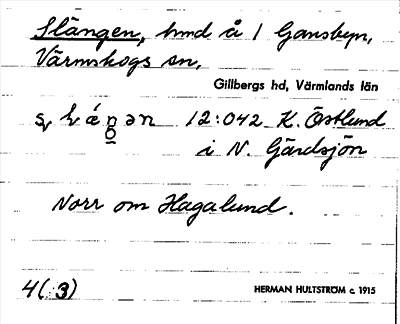 Slängen, hmd å 1 Gansbyn,
Värmskogs sn,
Gillbergs hd, Värmlands län
12:042 K. Östlund
i N. Gärdsjön
Norr om Hagalund.
4(:3)
HERMAN HULTSTRÖM c. 1915